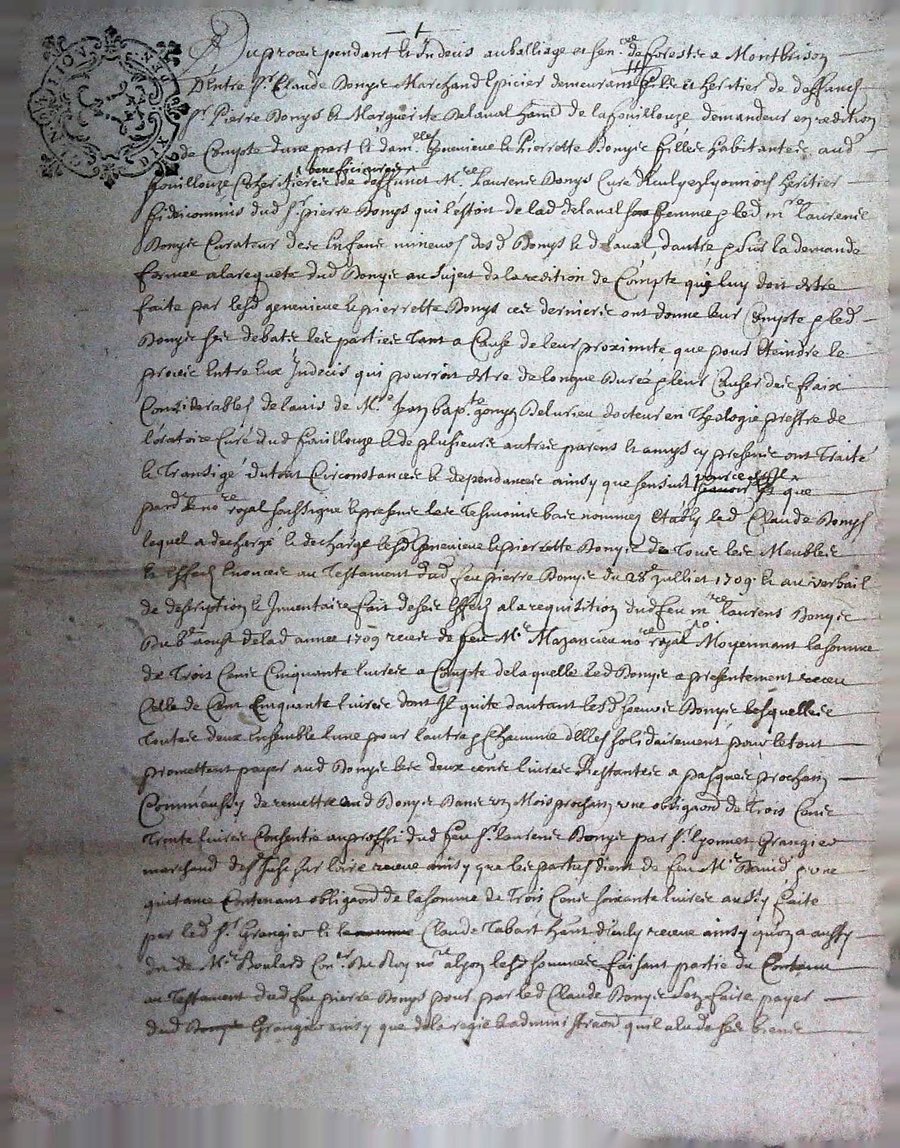 Du proces pendant et Indecis au balliage et sen.cee de forestz a Montbrison
Entre Sr Claude Bonys Marchand Epicier demeurant fils et heritier de deffunct
Sr Pierre Bonys et Marguerite Delaval de la fouillouze demandeur en redition
de Compte dune part et dam.lles Genevieve et Pierrette Bonys filles habitantes aud
fouillouze heritieres beneficiaires de deffunct M.re Laurens Bonys Curé heritier
fideicommis dud Sr pierre Bonys qui lestoit de lad delaval sa femme led m.re laurens
Bonys Curateur des Enfans mineurs desd Bonys et delaval dautre p Sur la demande
formee a la requete dud Bonys au sujet de la redition de Compte qui luy doit estre
faite par lesd genevieve et pierrette Bonys ces dernieres ont donne leur Compte led
Bonys ses debats les parties Tant a Cause de leur proximité que pour Eteindre le
proces Entre Eux Indecis qui pourroit Estre de longue Durée et leur Causer des fraix
Considerables de lavis de M.re Jean bap.te Delurieu docteur en Theologie prestre de
loratoire Curé dud fouillouze et de plusieurs autres parens et amys cy presens ont Traité
et Transigé du tout Circonstances et dependances ainsy que sensuit pource est il que
pard.t le no.re royal soussigne et presens les Tesmoins bas nommez Etably led Claude Bonys
lequel a dechargé et decharge lesd Genevieve et pierrette Bonys de Tous les Meubles
et Effects Enonces au Testament dud feu pierre Bonys du 28e juilliet 1709 et au verbail
de description et Inventaire fait de ses Effects a la requisition dud feu m.re laurens Bonys
Du aoust de lad annee 1709 receu de feu M.e Mazancieu no.re royal Moyennant la somme
de Trois Cens Cinquante livres a Compte de laquelle led Bonys a presentement receu
Celle de Cent Cinquante livres dont Il quite dautant lesd soeurs Bonys lesquelles
Toutes deux Ensemble lune pour lautre Chacune delles solidairement pour le tout
promettent payer aud Bonys les deux cens livres Restantes a pasques prochain
Comm'aussy de remettre aud Bonys Dans un Mois prochain une obligaon de Trois Cens
Trente livres Consentie au proffit dud feu Sr laurens Bonys par Sr lyonnet Grangier
marchand de St Just sur loire receue ainsy que les parties dient de feu M.e David une
quitance Contenant obligaon de la somme de Trois Cens soixante livres aussy faite
par led Sr Grangier et Claude Tabart receue ainsy quon a aussy
dit de M.e Boulard Con.er Du Roy no.re a lyon lesd sommes faisant partie du Contenu
au Testament dud feu pierre Bonys pour par led Claude Bonys sen faire payer
dud Grangier ainsy que de la regie et administraon quil a eu de ses biens